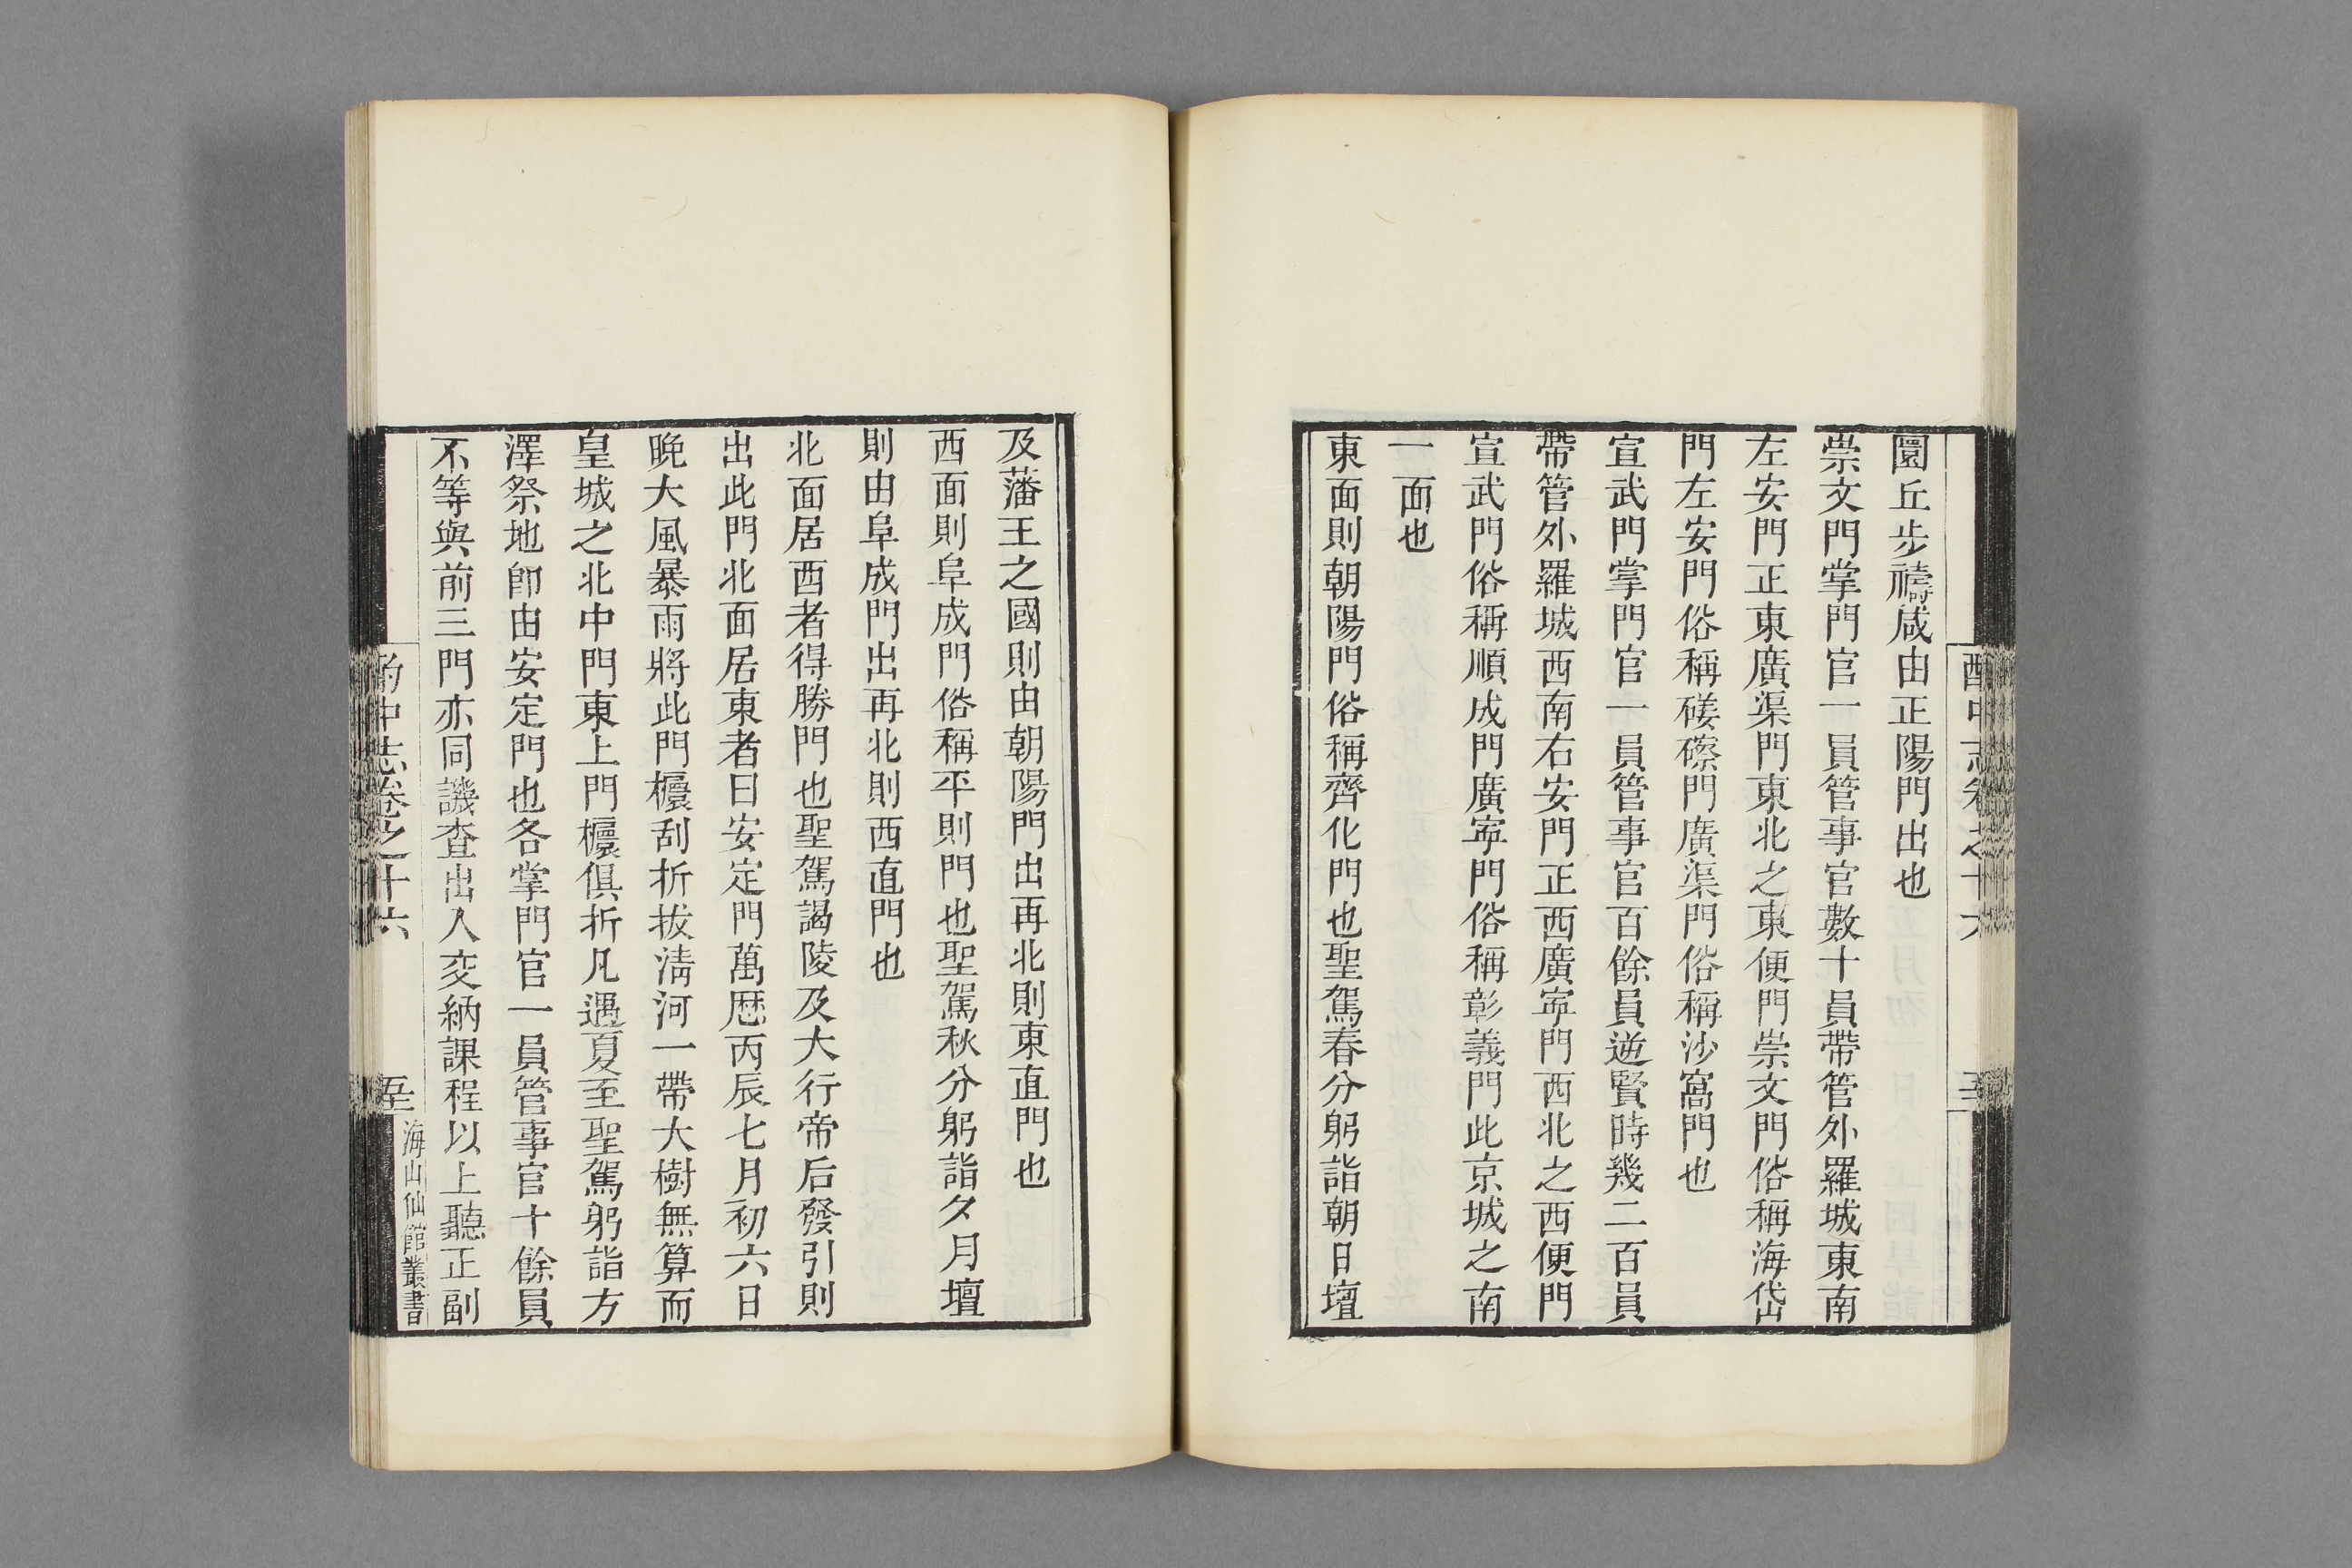 圜丘步禱咸由正陽門出也
崇文門掌門官一員管事官數十員帶管外羅城東南
左安門正東廣渠門東北之東便門崇文門俗稱海岱
門左安門俗稱礤磜門廣渠門俗稱沙窩門也
宣武門掌門官一員管事官百餘員逆賢時幾二百員
帶管外羅城西南右安門正西廣寧門西北之西便門
宣武門俗稱順成門廣寧門俗稱彰義門此京城之南
一面也
東面則朝陽門俗稱齊化門也聖駕春分躬詣朝日壇
及藩王之國則由朝陽門出再北則東直門也
西面則阜成門俗稱平則門也聖駕秋分躬詣夕月壇
則由阜成門出再北則西直門也
北面居西者得勝門也聖駕謁陵及大行帝后發引則
出此門北面居東者曰安定門萬歷丙辰七月初六日
晚大風暴雨將此門櫎刮折拔淸河一帶大樹無算而
皇城之北中門東上門櫎俱折凡遇夏至聖駕躬詣方
澤祭地卽由安定門也各掌門官一員管事官十餘員
不等與前三門亦同譏查出入交納課程以上聽正副
酌中志卷之十六
海山仙館叢書